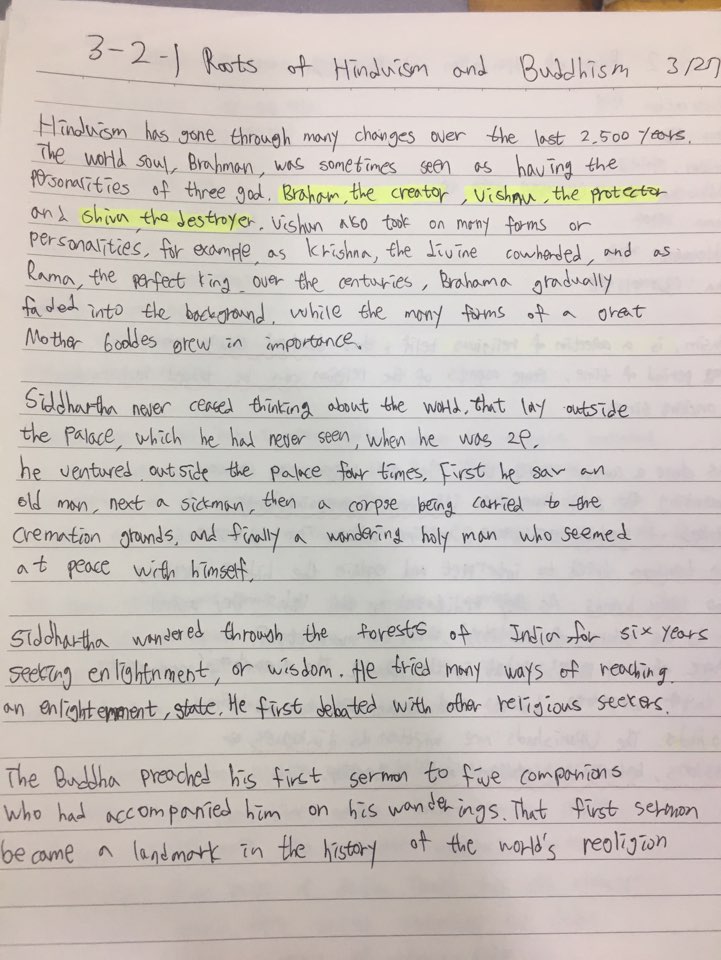 3-2-1 Roots of Hinduism and Buddhism 3/27
Hinduism has gone through many changes over the last 2,500 years.
The world soul, Brahman, was sometimes seen as having the
personalities of three god. Braham, the creator, Vishnu, the protector
and shiva, the destroyer. Vishun also took on many forms or
personalities, for example, as Krishna, the divine cowherded, and as
Rama, the perfect king. over the centuries, Brahama gradually
faded into the background, while the many forms of a great
Mother Goddes grew in importance.
Siddhartha never ceased thinking about the world, that lay outside
the palace, which he had never seen, when he was 29,
he ventured outside the palace four times. First he saw an
old man, next a sickman, then a corpse being carried to the
cremation grounds, and finally a wandering holy man who seemed
at peace with himself.
Siddhartha wandered through the forests of India for six years
seeking enlightnment, or wisdom. He tried many ways of reaching
an enlightenment, state. He first debated with other religious seekers.
The Buddha preached his first sermon to five companions
who had accompanied him on his wanderings. That first sermon
became a landmark in the history of the world's reoligion